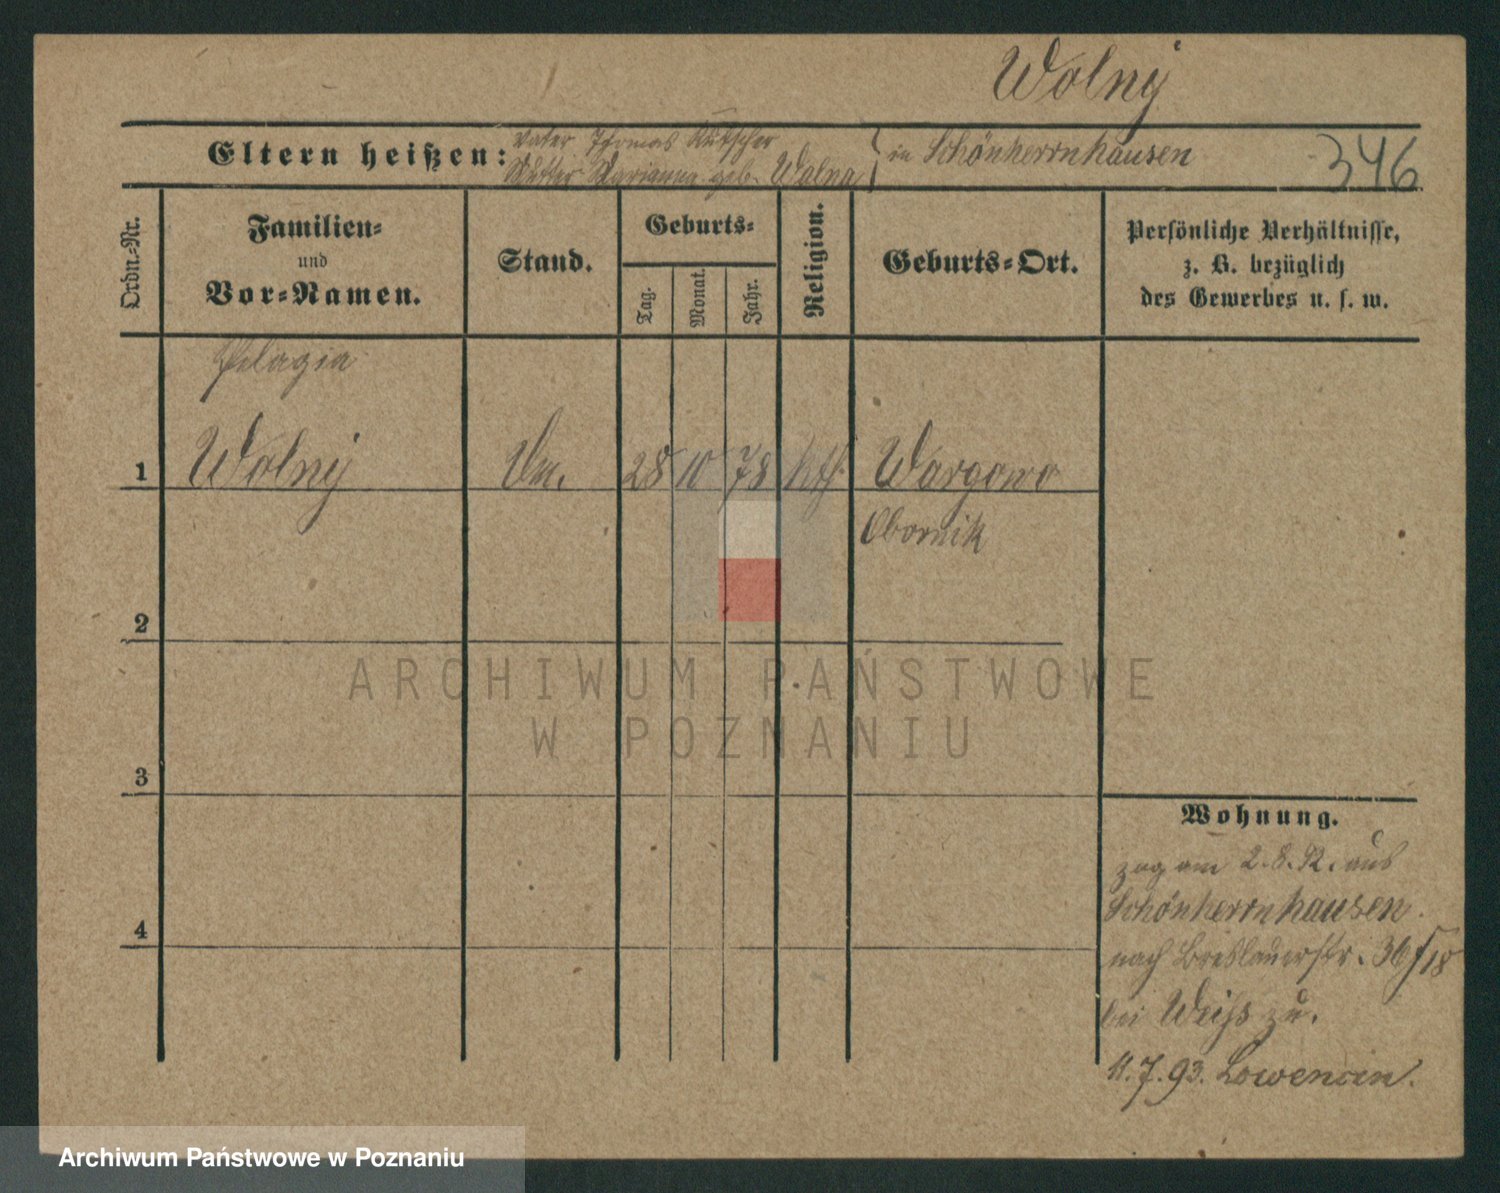 Wolny
Eltern heißen: Vater Thomas Kutscher
Mutter Marianna geb. Wolna
in Schönherrnhausen
346
Ordn.-Nr.
Familien-
und
Vor-Namen.
Stand.
Geburts-
Tag.
Monat.
Jahr.
Religion.
Geburts-Ort.
Persönliche Verhältnisse,
z. B. bezüglich
des Gewerbes u. s. w.
Pelagia
1 Wolny 28 10 78 kth. Wargowo
Obornik
2
3
4
Wohnung.
zog am 2.8.92. aus
Schönherrnhausen.
nach Breslauerstr. 36/18
bei Weiss zu.
11.7.93. Lowencin.
ARCHIWUM PAŃSTWOWE
W POZNANIU
Archiwum Państwowe w Poznaniu